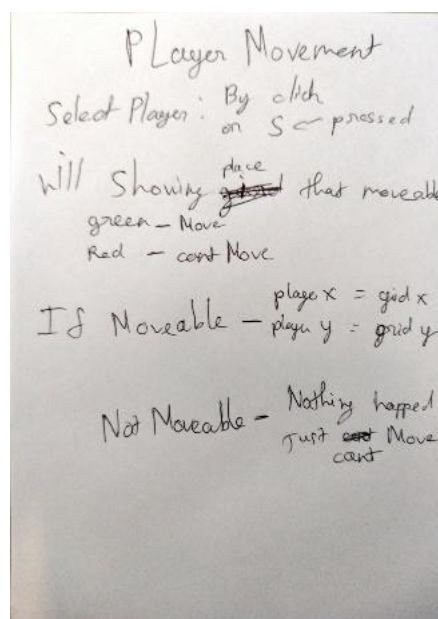 PLayer Movement
Select Player : By click
on S ← pressed
Will Showing place that moveable
green – Move
Red – cant Move
If Moveable – player x = gid x
player y = grid y
Not Moveable – Nothing happed
Just Move
cant